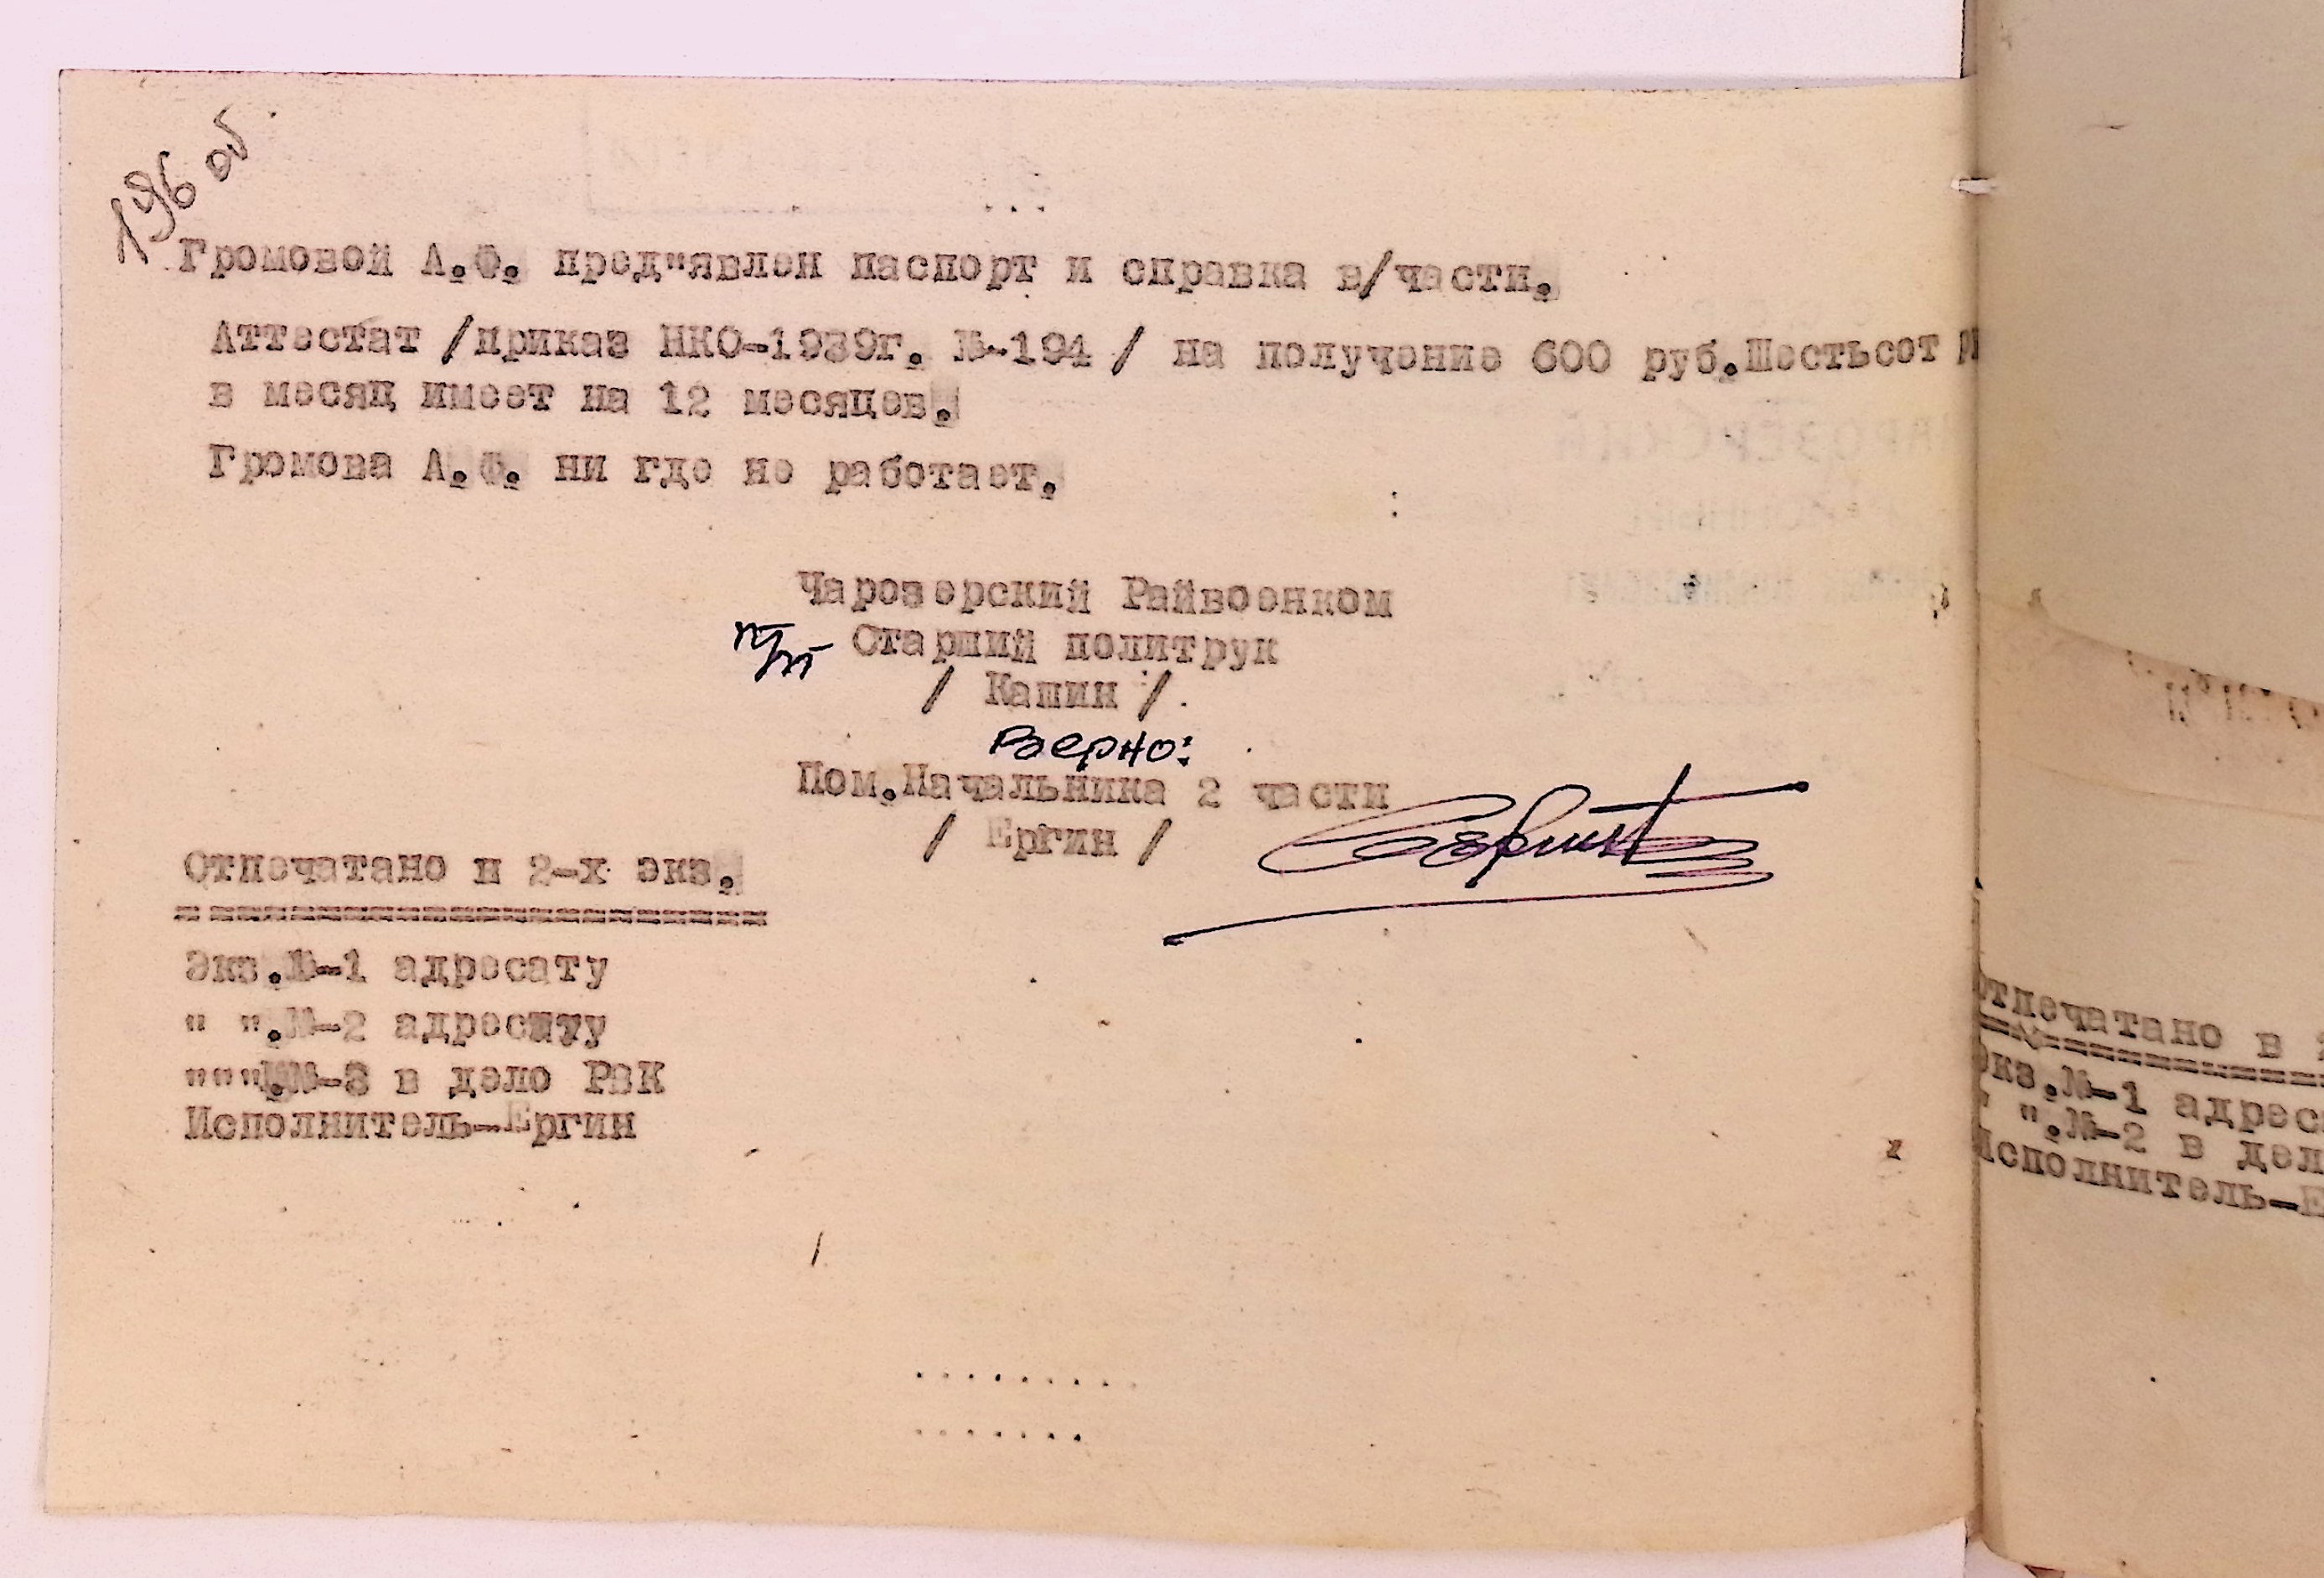 196 об.
Громовой А.Ф. пред"явлен паспорт и справка в/части.
Аттестат /приказ НКО-1939г. №-194 / на получение 600 руб.Шестьсот
в месяц имеет на 12 месяцев.
Громова А.Ф. ни где не работает.
Чарозерский Райвоенком
п/п Старший политрук
/ Кашин /.
Верно:
Пом.Начальника 2 части
/ Ергин /
Отпечатано в 2-х экз.
Экз.№-1 адресату
" ".№-2 адресату
"""№-3 в дело РВК
Исполнитель-Ергин
Отпечатано в
Экз.№-1
" ".№-2 в
Исполнитель-